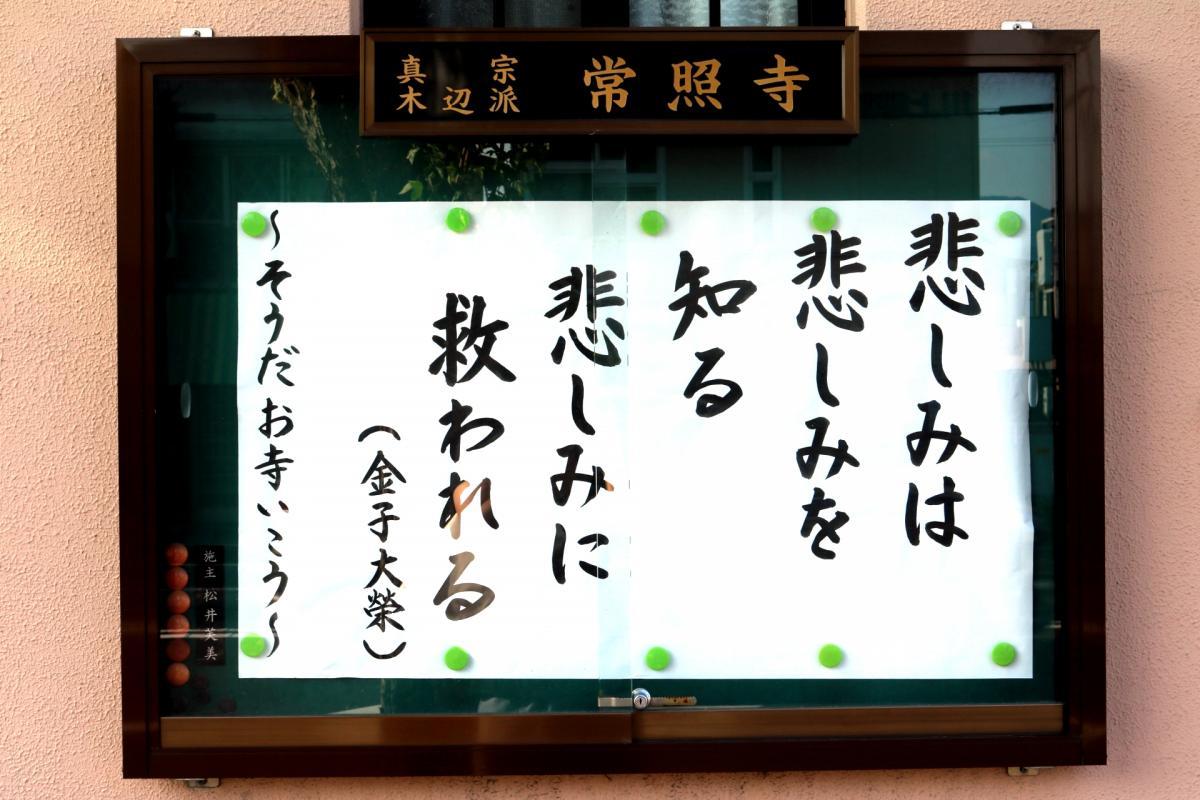 真宗
木辺派
常照寺
悲しみは
悲しみを
知る
悲しみに
救われる
（金子大榮）
〜そうだお寺いこう〜
施主 松井芙美